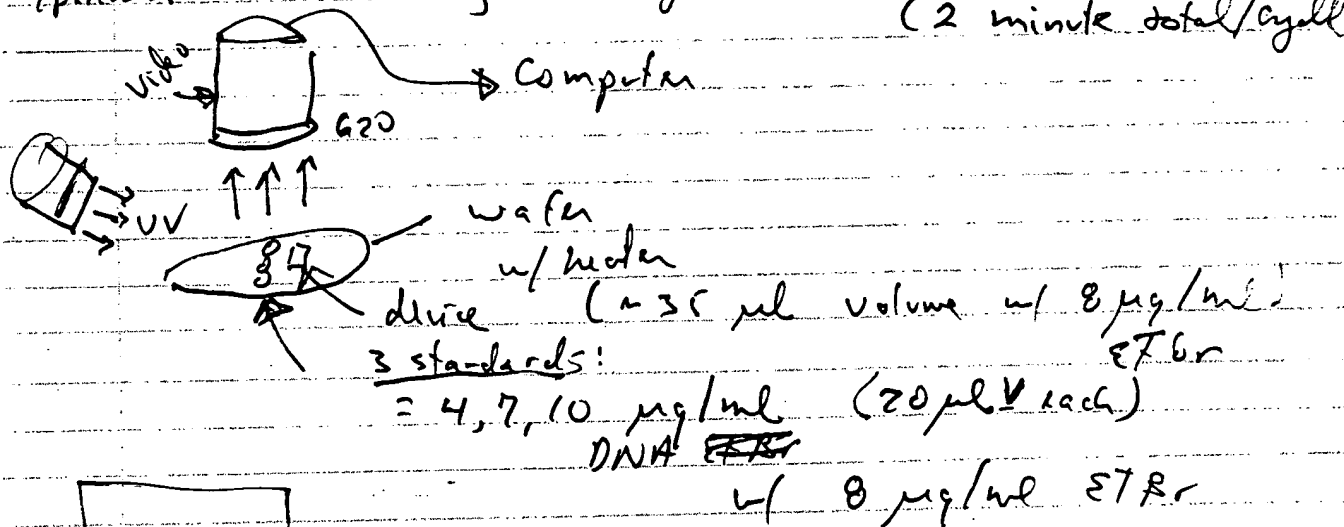 (2 minute total/cycle
video
Computer
620
UV
wafer
w/ heater
device (~35 µl volume w/ 8 µg/ml
ETBr
3 standards:
= 4, 7, 10 µg/ml (20 µl V each)
DNA
w/ 8 µg/ml ETBr